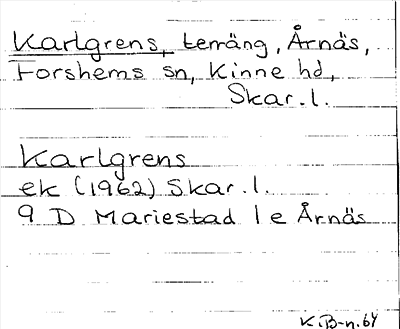 Karlgrens, terräng, Årnäs,
Forshems sn, Kinne hd,
Skar.l.
Karlgrens
ek (1962) Skar.l.
9 D Mariestad 1 e Årnäs
K.B-n.64